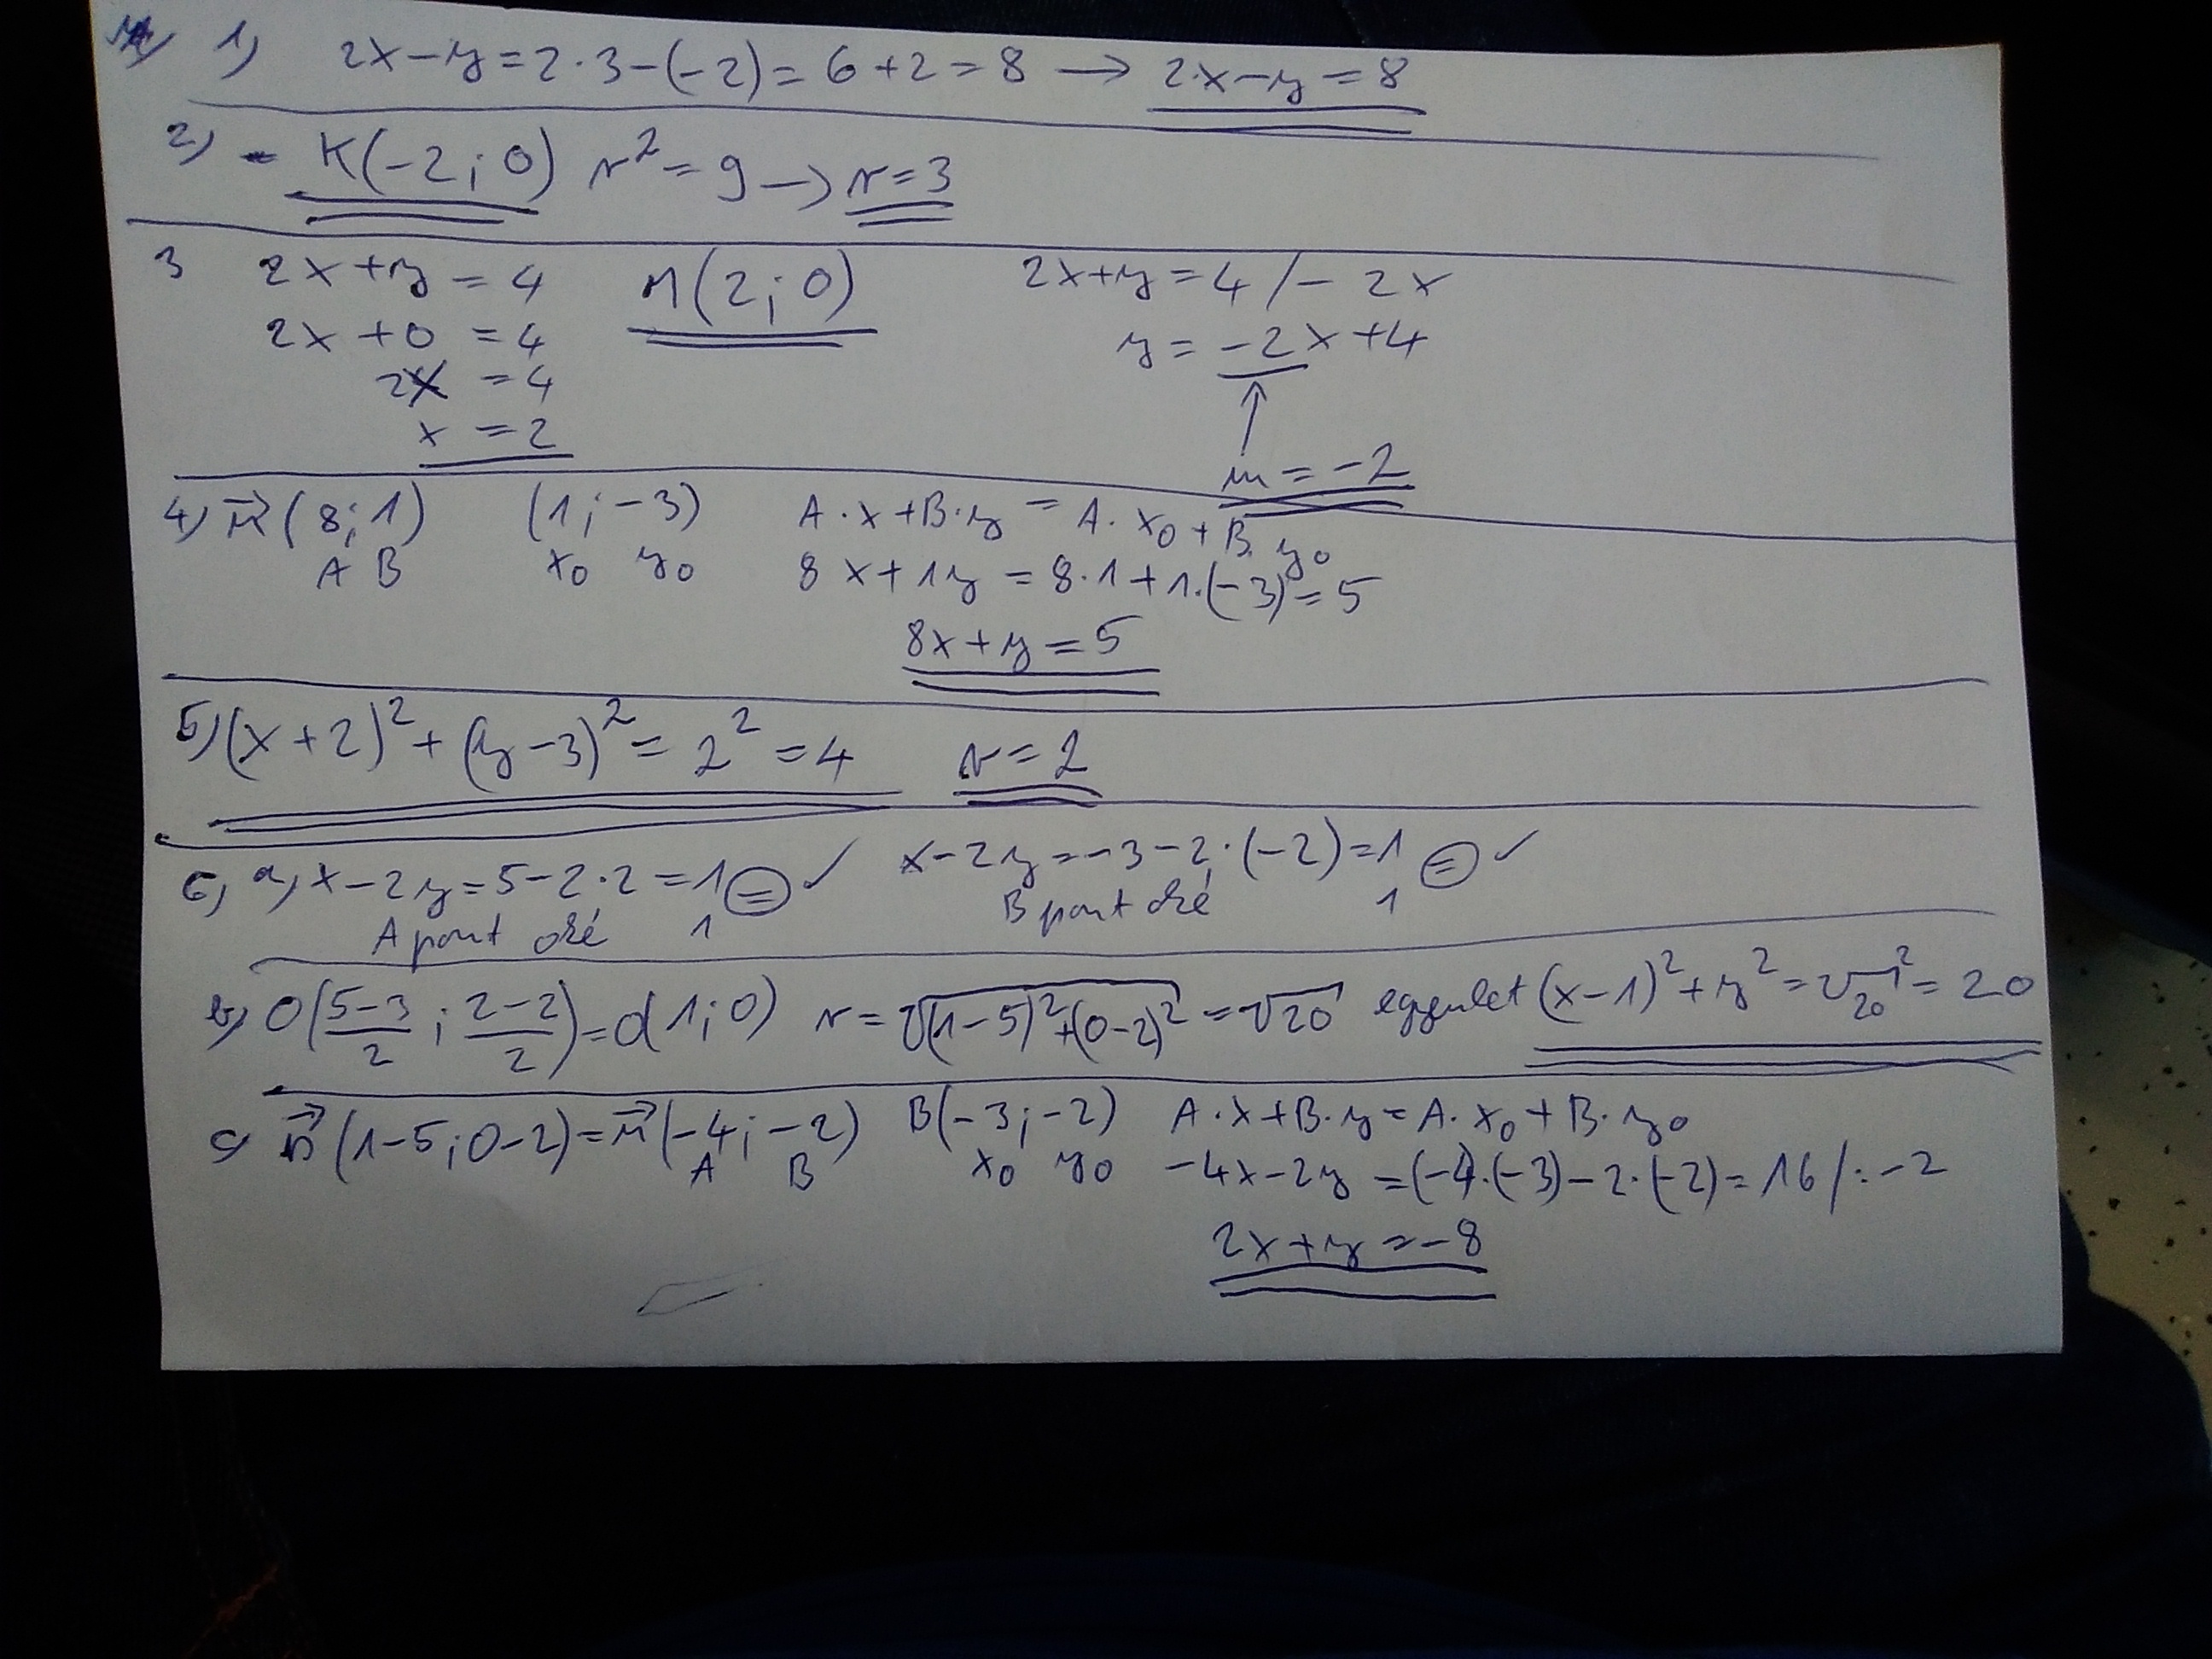 1) 2x-y=2·3-(-2)=6+2=8 → 2·x-y=8
2) - K(-2;0) r²=9 → r=3
3 2x+y=4 M(2;0) 2x+y=4 /-2x
2x+0=4 y=-2x+4
2x=4
x=2 m=-2
4) n⃗(8;1) (1;-3) A·x+B·y=A·x₀+B·y₀
A B x₀ y₀ 8x+1y=8·1+1·(-3)=5
8x+y=5
5) (x+2)²+(y-3)²=2²=4 r=2
6) a) x-2y=5-2·2=1 = 1 ✓ x-2y=-3-2·(-2)=1 = 1 ✓
A pont oké B pont oké
b) O(5-3/2;2-2/2)=O(1;0) r=√(1-5)²+(0-2)²=√20 egyenlet (x-1)²+y²=√20²=20
c) n⃗(1-5;0-2)=n⃗(-4;-2) B(-3;-2) A·x+B·y=A·x₀+B·y₀
A B x₀ y₀ -4x-2y=(-4)·(-3)-2·(-2)=16 /:-2
2x+y=-8